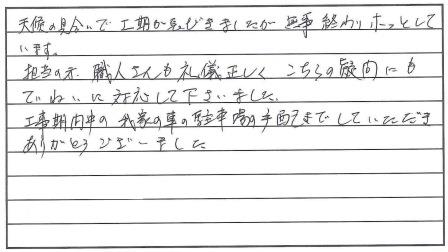 天候の具合いで工期が延びきましたが無事終わりホッとして
います。
担当の方、職人さんも礼儀正しく こちらの疑問にも
ていねいに対応して下さいました。
工事期間中の我家の車の駐車場の手配までしていただき
ありがとうございました